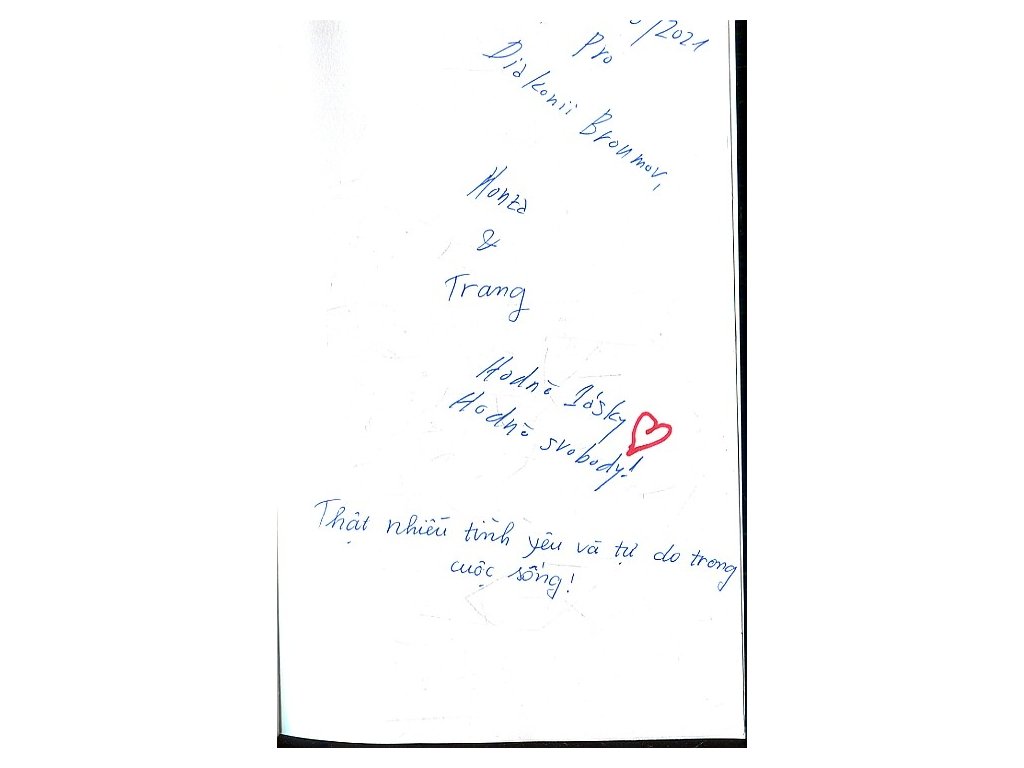 /2021
Pro
Diakonii Broumov,
Honza
&
Trang
Hodně lásky
Hodně svobody!
Thật nhiều tình yêu và tự do trong
cuộc sống!